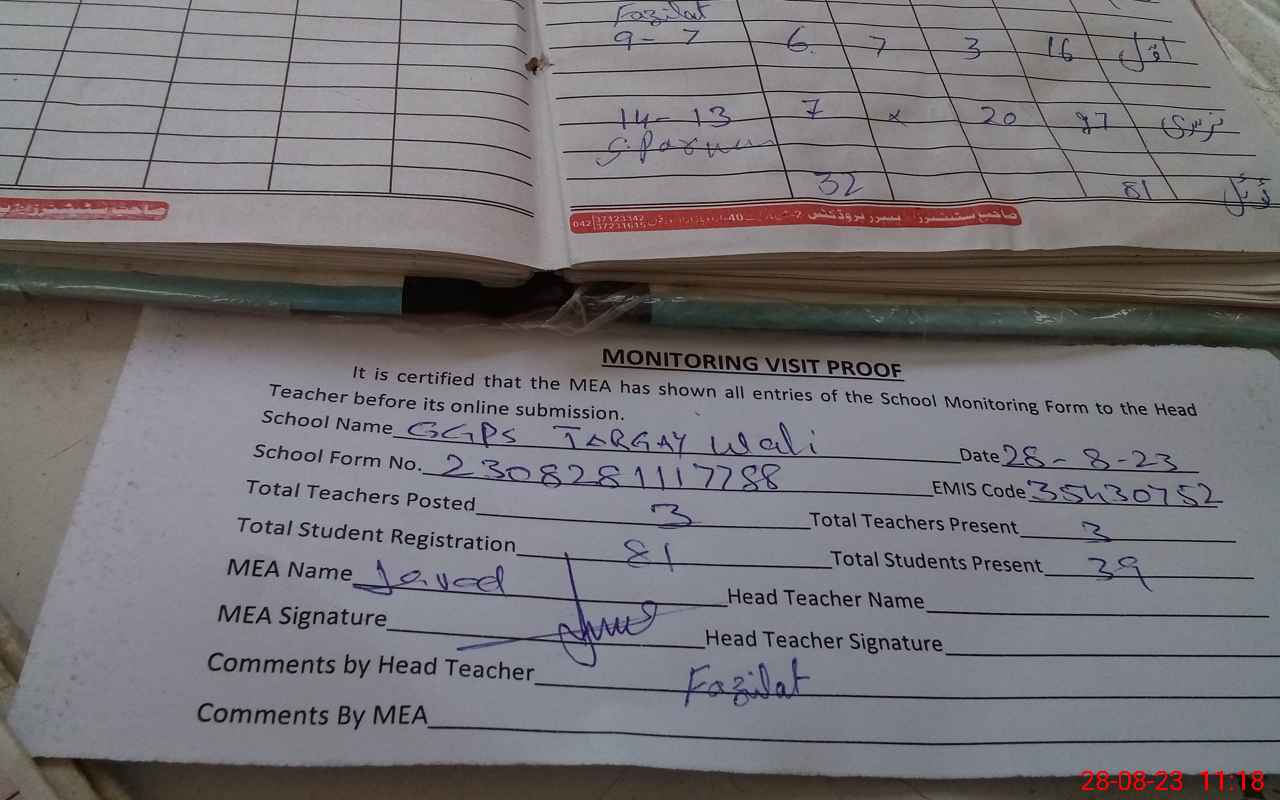 Fazilat
9-7 6. 7 3 16 اوّل
14-13 7 x 20 نرسری
S.Parveen
32 81
صاحب سٹیشنرز
042 37123342 37231615 صاحب سٹیشنرز پیپر پروڈکٹس
MONITORING VISIT PROOF
It is certified that the MEA has shown all entries of the School Monitoring Form to the Head
Teacher before its online submission.
School Name GGPS TARGAY Wali Date 28-8-23
School Form No. 2308281117788 EMIS Code 35430752
Total Teachers Posted 3 Total Teachers Present 3
Total Student Registration 81 Total Students Present 39
MEA Name Javad Head Teacher Name
MEA Signature Head Teacher Signature
Comments by Head Teacher Fazilat
Comments By MEA
28-08-23 11:18